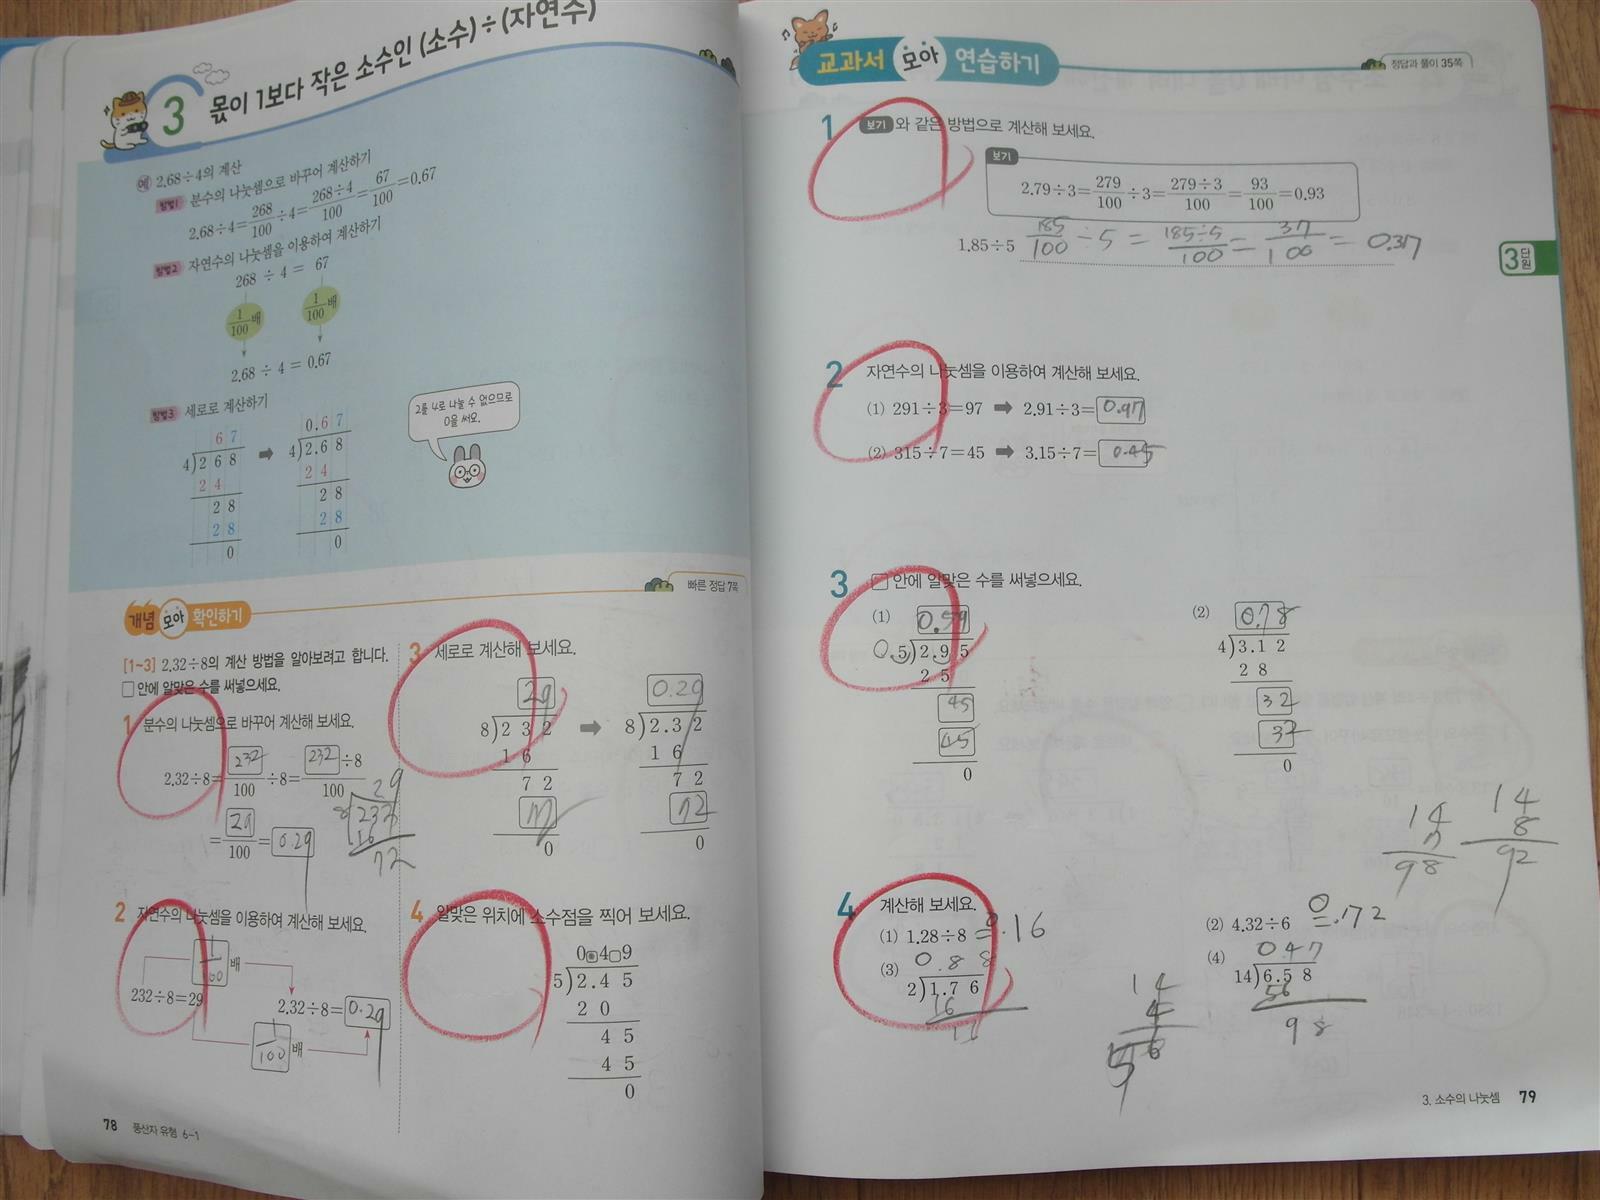 3 몫이 1보다 작은 소수인 (소수)÷(자연수)
예 2.68÷4의 계산
방법1 분수의 나눗셈으로 바꾸어 계산하기
2.68÷4=268/100÷4=268÷4/100=67/100=0.67
방법2 자연수의 나눗셈을 이용하여 계산하기
268 ÷ 4 = 67
1/100배 1/100배
2.68 ÷ 4 = 0.67
방법3 세로로 계산하기
6 7 ➡ 0.6 7
4)2 6 8 4)2.6 8
2 4 2 4
2 8 2 8
2 8 2 8
0 0
2를 4로 나눌 수 없으므로
0을 써요.
빠른 정답 7쪽
개념 모아 확인하기
[1~3] 2.32÷8의 계산 방법을 알아보려고 합니다.
□ 안에 알맞은 수를 써넣으세요.
1 분수의 나눗셈으로 바꾸어 계산해 보세요.
2.32÷8=232/100÷8=232÷8/100
=29/100=0.29
29
8)232
16
72
2 자연수의 나눗셈을 이용하여 계산해 보세요.
1/100 배
232÷8=29 2.32÷8=0.29
1/100 배
3 세로로 계산해 보세요.
29 ➡ 0.29
8)2 3 2 8)2.3 2
1 6 1 6
7 2 7 2
72 72
0 0
4 알맞은 위치에 소수점을 찍어 보세요.
0▣4□9
5)2.4 5
2 0
4 5
4 5
0
78 풍산자 유형 6-1
교과서 모아 연습하기
정답과 풀이 35쪽
1 보기 와 같은 방법으로 계산해 보세요.
보기
2.79÷3=279/100÷3=279÷3/100=93/100=0.93
1.85÷5 185/100÷5=185÷5/100=37/100=0.37
3단원
2 자연수의 나눗셈을 이용하여 계산해 보세요.
(1) 291÷3=97 ➡ 2.91÷3=0.97
(2) 315÷7=45 ➡ 3.15÷7=0.45
3 □ 안에 알맞은 수를 써넣으세요.
(1) 0.59
0.5)2.9 5
2 5
45
45
0
(2) 0.78
4)3.1 2
2 8
32
32
0
14
7
98
14
8
92
4 계산해 보세요.
(1) 1.28÷8 =0.16
(2) 4.32÷6 =0.72
(3) 0.88
2)1.7 6
16
1
(4) 0.47
14)6.5 8
56
98
14
4
56
3. 소수의 나눗셈 79